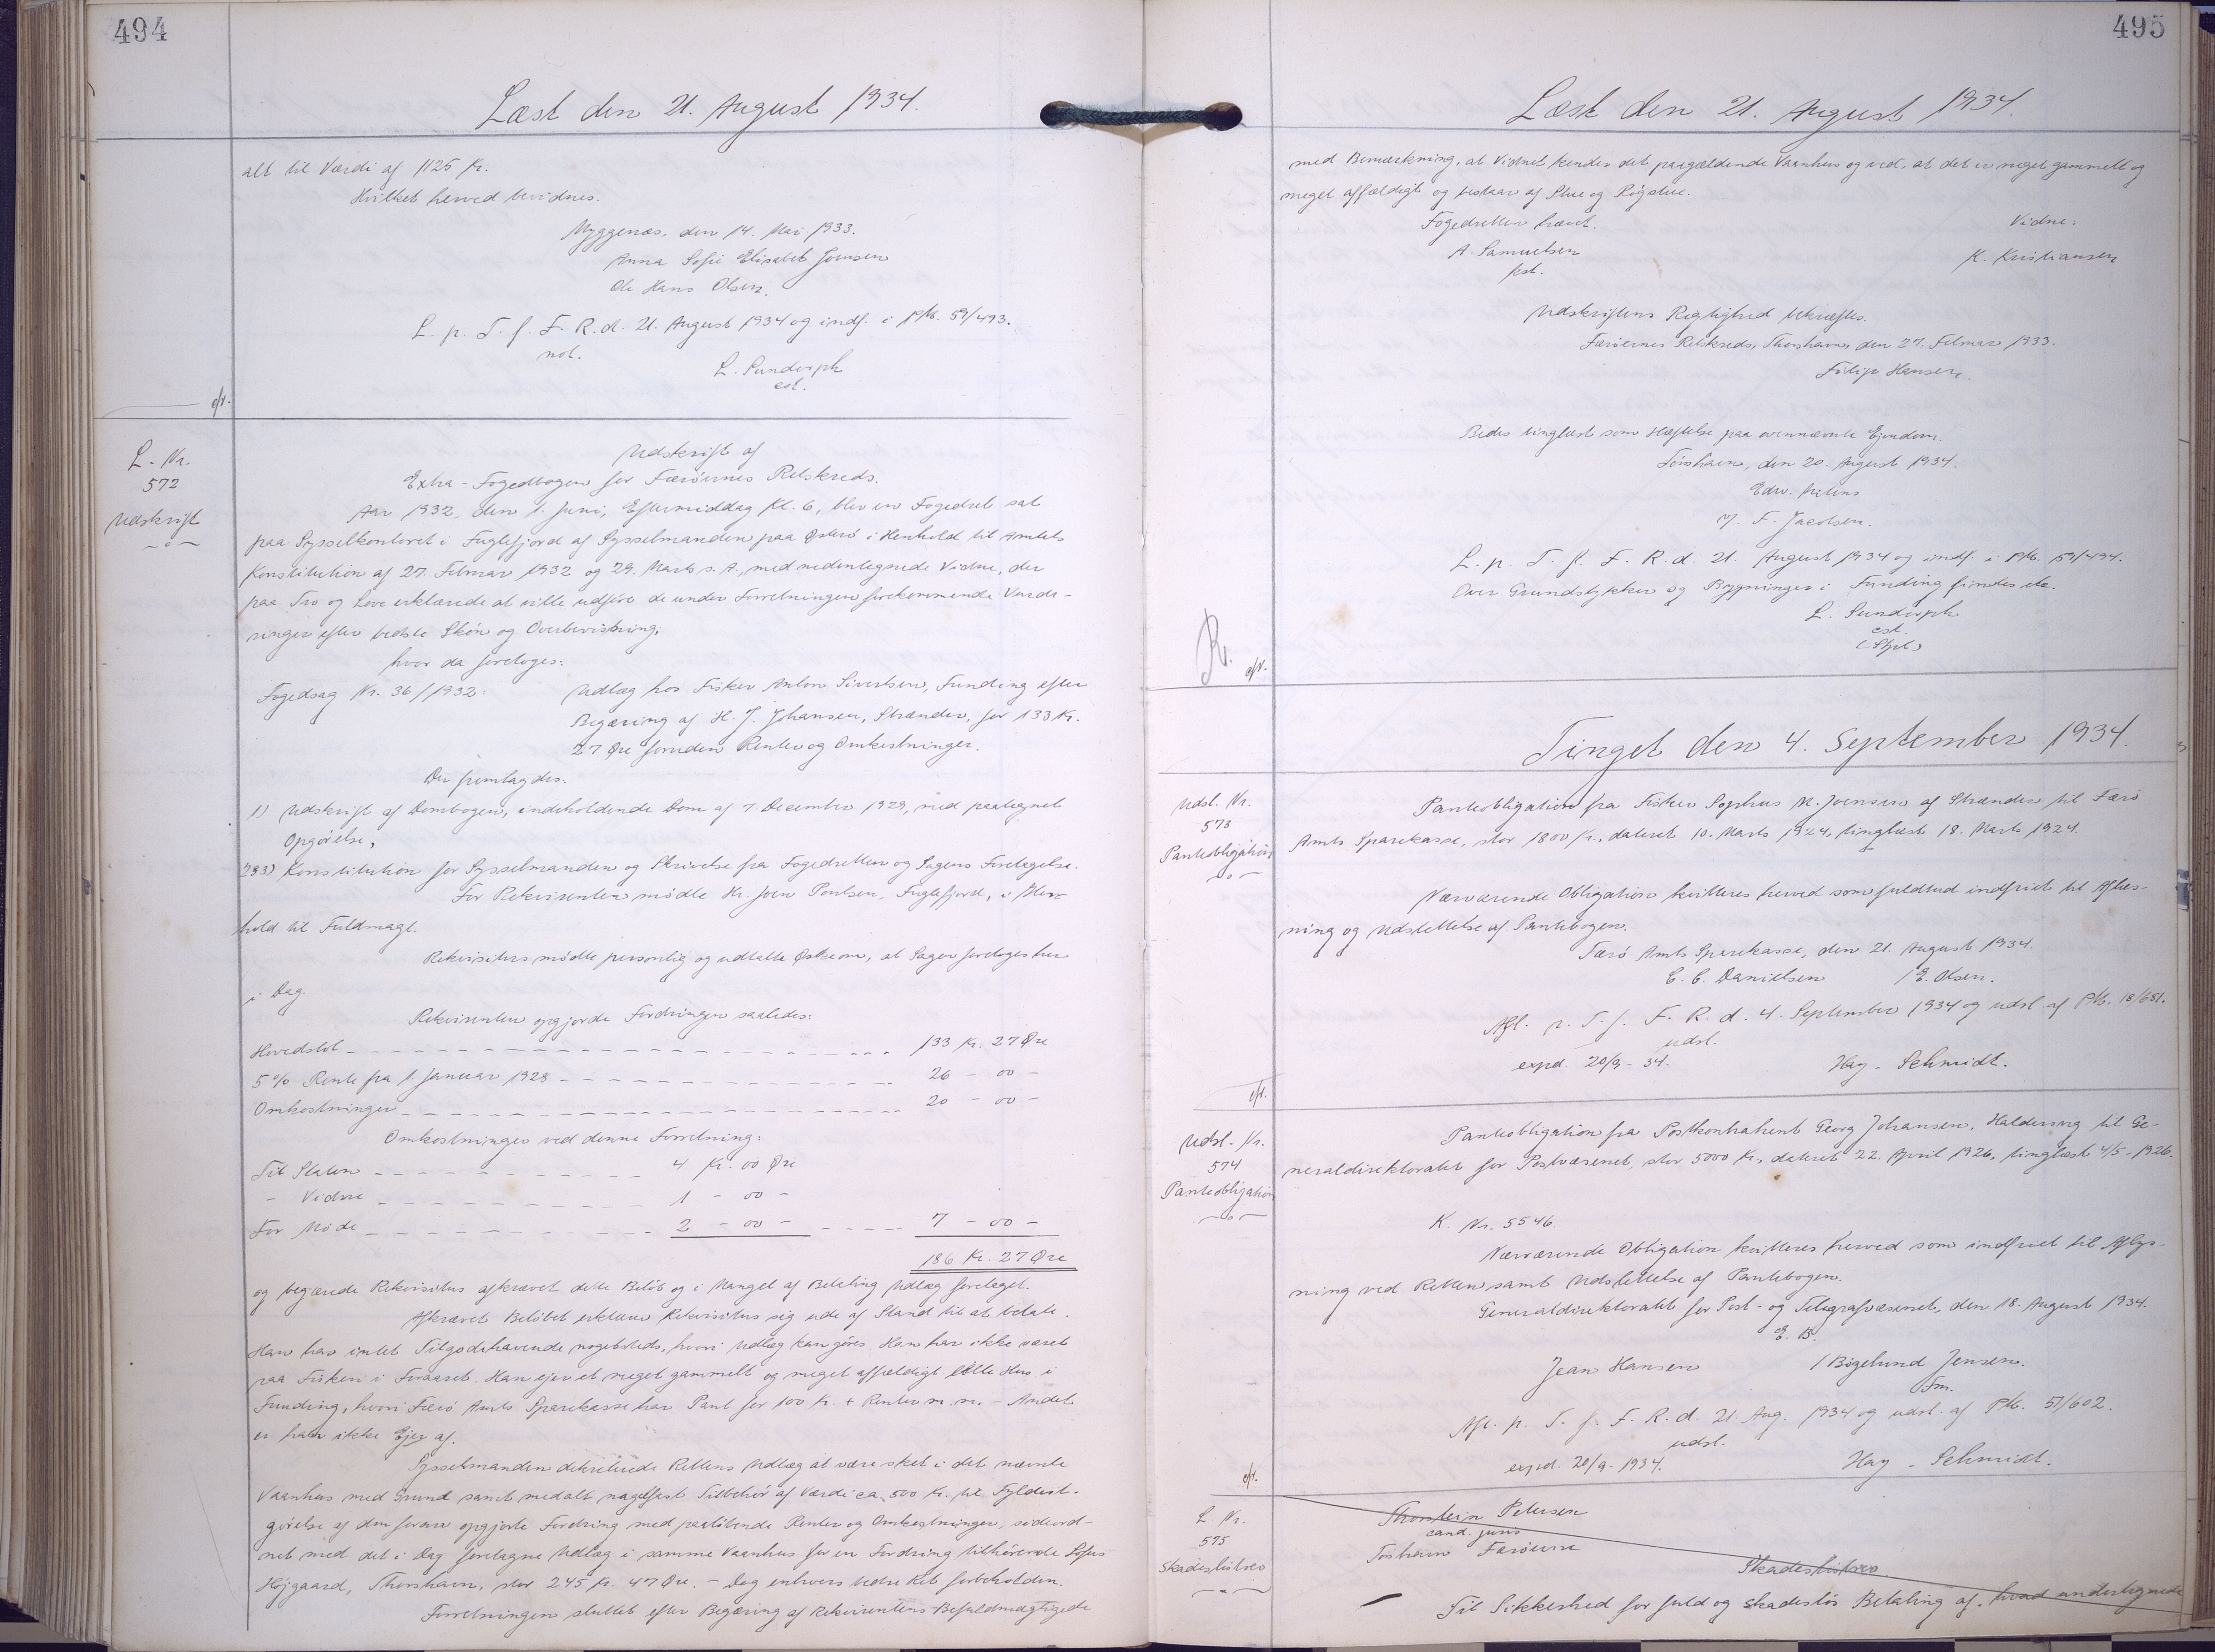 494
Læst den 21. August 1934.
alt til Værdi af 1125 Kr.
Hvilket herved bevidnes.
Myggenæs, den 14. Mai 1933.
Anna Sofie Elisabet Joensen
Ole Hans Olsen.
L. p. T. f. F. R. d. 21. August 1934 og indf. i PM. 59/493.
not.
L. Sundorph
cst.
L. Nr.
572
Udskrift
Udskrift af
Extra-Fogedbogen for Færøernes Retskreds.
Aar 1932, den 1. Juni, Eftermiddag Kl. 6, blev en Fogedret sat
paa Sysselkontoret i Fuglefjord af Sysselmanden paa Østerö i Henhold til Amtets
Konstitution af 27. Februar 1932 og 29. Marts s. A., med nedentegnede Vidne, der
paa Tro og Love erklærede at ville udföre de under Forretningen forekommende Vurde-
ringer efter bedste Skön og Overbevisning,
hvor da foretoges:
Fogedsag Nr. 36/1932:
Udlæg hos Fisker Anton Sivertsen, Funding efter
Begæring af H. J. Johansen, Strænder, for 133 Kr.
27 Øre foruden Renter og Omkostninger.
Der fremlagdes:
1) Udskrift af Dombogen, indeholdende Dom af 7. December 1929, med paategnet
Opgörelse,
2&3) Konstitution for Sysselmanden og Skrivelse fra Fogedretten og Sagens Foretagelse.
For Rekvirenten mödte Hr. Joen Poulsen, Fuglefjord, i Hen-
hold til Fuldmagt.
Rekvisitus mödte personlig og udtalte Ønske om, at Sagen foretoges her
i Dag.
Rekvirenten opgjorde Fordringen saaledes:
Hovedstol 133 Kr. 27 Øre
5% Rente fra 1. Januar 1928 26 - 00 -
Omkostninger 20 - 00 -
Omkostninger ved denne Forretning:
Til Staten 4 Kr. 00 Øre
- Vidne 1 - 00 -
For Möde 2 - 00 - 7 - 00 -
186 Kr. 27 Øre
og begærede Rekvisitus afkrævet dette Belöb og i Mangel af Betaling Udlæg foretaget.
Afkrævet Belöbet erklærer Rekvisitus sig ude af Stand til at betale.
Han har intet Tilgodehavende nogetsteds, hvori Udlæg kan göres. Han har ikke været
paa Fiskeri i Foraaret. Han ejer et meget gammelt og meget affældigt lille Hus i
Funding, hvori Færö Amts Sparekasse har Pant for 100 Kr. + Renter m. m. - Andet
er han ikke Ejer af.
Sysselmanden dekreterede Rettens Udlæg at være sket i det nævnte
Vaanhus med Grund samt med alt nagelfast Tilbehör af Værdi ca. 500 Kr. til Fyldest-
görelse af den foran opgjorte Fordring med paalöbende Renter og Omkostninger, sideord-
net med det i Dag foretagne Udlæg i samme Vaanhus for en Fordring tilhörende Sofus
Höjgaard, Thorshavn, stor 245 Kr. 47 Øre. - Dog enhvers bedre Ret forbeholden.
Forretningen sluttet efter Begæring af Rekvirentens Befuldmægtigede
495
Læst den 21. August 1934.
med Bemærkning, at Vidnet kender det paagældende Vaanhus og ved, at det er meget gammelt og
meget affældigt og bestaar af Stue og Rögstue.
Fogedretten hævet.
Vidne:
A. Samuelsen
kst.
K. Kristiansen
Udskriftens Rigtighed bekræftes.
Færöernes Retskreds, Thorshavn, den 27. Februar 1933.
Filip Hansen.
Bedes tinglæst som Hæftelse paa ovennævnte Ejendom.
Tórshavn, den 20. August 1934.
Edw.
F. Jacobsen.
L. p. T. f. F. R. d. 21. August 1934 og indf. i PM. 59/494.
Over Grundstykker og Bygninger i Funding findes ete.
L. Sundorph
cst.
Tinget den 4. September 1934.
Udsl. Nr.
573
Panteobligation
Panteobligation fra Fisker Sophus M. Joensen af Strænder til Færö
Amts Sparekasse, stor 1800 Kr., dateret 10. Marts 1924, tinglæst 18. Marts 1924.
Nærværende Obligation kvitteres herved som fuldtud indfriet til Aflæs-
ning og Udslettelse af Pantebogen.
Færö Amts Sparekasse, den 21. August 1934.
C. C. Danielsen / E. Olsen.
Afl. p. T. f. F. R. d. 4. September 1934 og udsl. af PM. 18/651.
udsl.
exped. 20/9 - 34.
Hay-Schmidt.
Udsl. Nr.
574
Panteobligation
Panteobligation fra Postkontrahent Georg Johansen, Haldersvig til Ge-
neraldirektoratet for Postvæsenet, stor 5000 Kr., dateret 22. April 1926, tinglæst 4/5-1926.
K. Nr. 5546.
Nærværende Obligation kvitteres herved som indfriet til Aflys-
ning ved Retten samt Udslettelse af Pantebogen.
Generaldirektoratet for Post- og Telegrafvæsenet, den 18. August 1934.
E. B.
Jean Hansen / Bögelund Jensen.
Fm.
Afl. p. T. f. F. R. d. 21. Aug. 1934 og udsl. af PM. 51/602.
udsl.
exped. 20/9-1934.
Hay-Schmidt.
L. Nr.
575
Skadeslösbrev
Thorstein Petersen
cand. juris
Torshavn Færöerne
Skadeslösbrev
Til Sikkerhed for fuld og skadeslös Betaling af, hvad undertegnede